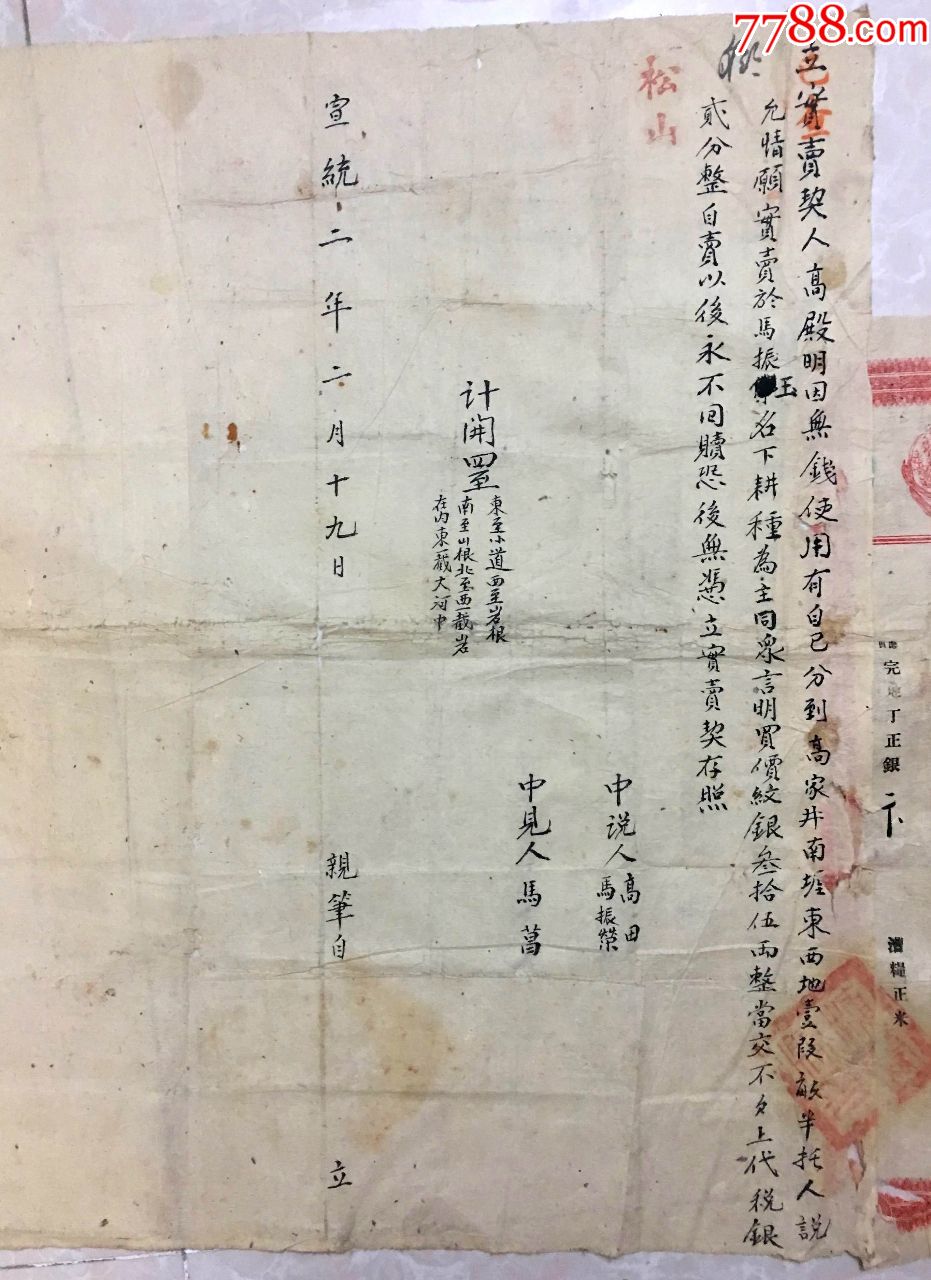 7788.com
立實賣契人高殿明因無錢使用有自已分到高家井南堐東西地壹段畝半托人說
允情願實賣於馬振玉名下耕種為主同眾言明買價紋銀叁拾伍両整當交不欠上代稅銀
貳分整自賣以後永不回贖恐後無憑立實賣契存照
松山
中説人高田
馬振榮
中見人馬菖
計開四至
東至小道西至岩根
南至山根北至西一截岩
在内東一截大河中
宣統二年二月十九日 親筆自 立
完地丁正銀
漕糧正米